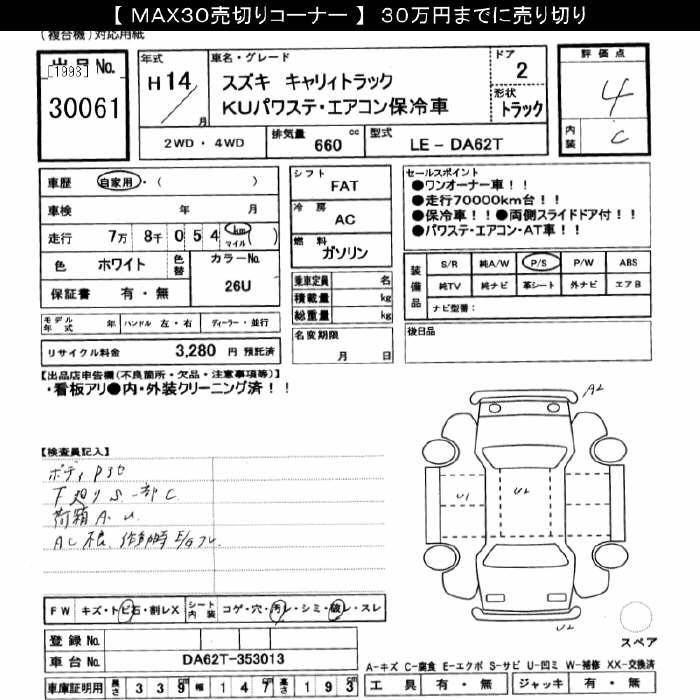 【 MAX30売切りコーナー 】 30万円までに売り切り
(複合機)対応用紙
出品No.
[1993]
30061
年式
H 14 / 月
車名・グレード
スズキ キャリィトラック
KUパワステ・エアコン保冷車
ドア
2
形状
トラック
評価点
4
内装
C
2WD ・ 4WD
排気量 660 cc
型式 LE － DA62T
車歴 自家用・( )
車検 年 月
走行 7万 8千 0 5 4 km マイル ( )
色 ホワイト 色替
カラーNo.
26U
保証書 有・無
シフト
FAT
冷房
AC
燃料
ガソリン
乗車定員 名
積載量 kg
総重量 kg
名変期限
月 日
セールスポイント
●ワンオーナー車！！
●走行70000km台！！
●保冷車！！●両側スライドドア付！！
●パワステ・エアコン・AT車！！
装備品
S/R 純A/W P/S P/W ABS
純TV 純ナビ 革シート 外ナビ エアB
ナビ型番：
後日品
モデル年式 年 ハンドル 左・右 ディーラー・並行
リサイクル料金 3,280 円 預託済
【出品店申告欄(不良箇所・欠品・注意事項等)】
・看板アリ●内・外装クリーニング済！！
【検査員記入】
ボディ
下廻り S 一部 C
荷箱 A. U
A2
U1
U2
U2
FW キズ・トビ石・割レX
シート内装 コゲ・穴・汚レ・シミ・破レ・スレ
スペア
登録No.
車台No. DA62T-353013
A-キズ C-腐食 E-エクボ S-サビ U-凹ミ W-補修 XX-交換済
車庫証明用 長さ 3 3 9 幅 1 4 7 高さ 1 9 3
工具 有・無 ジャッキ 有・無